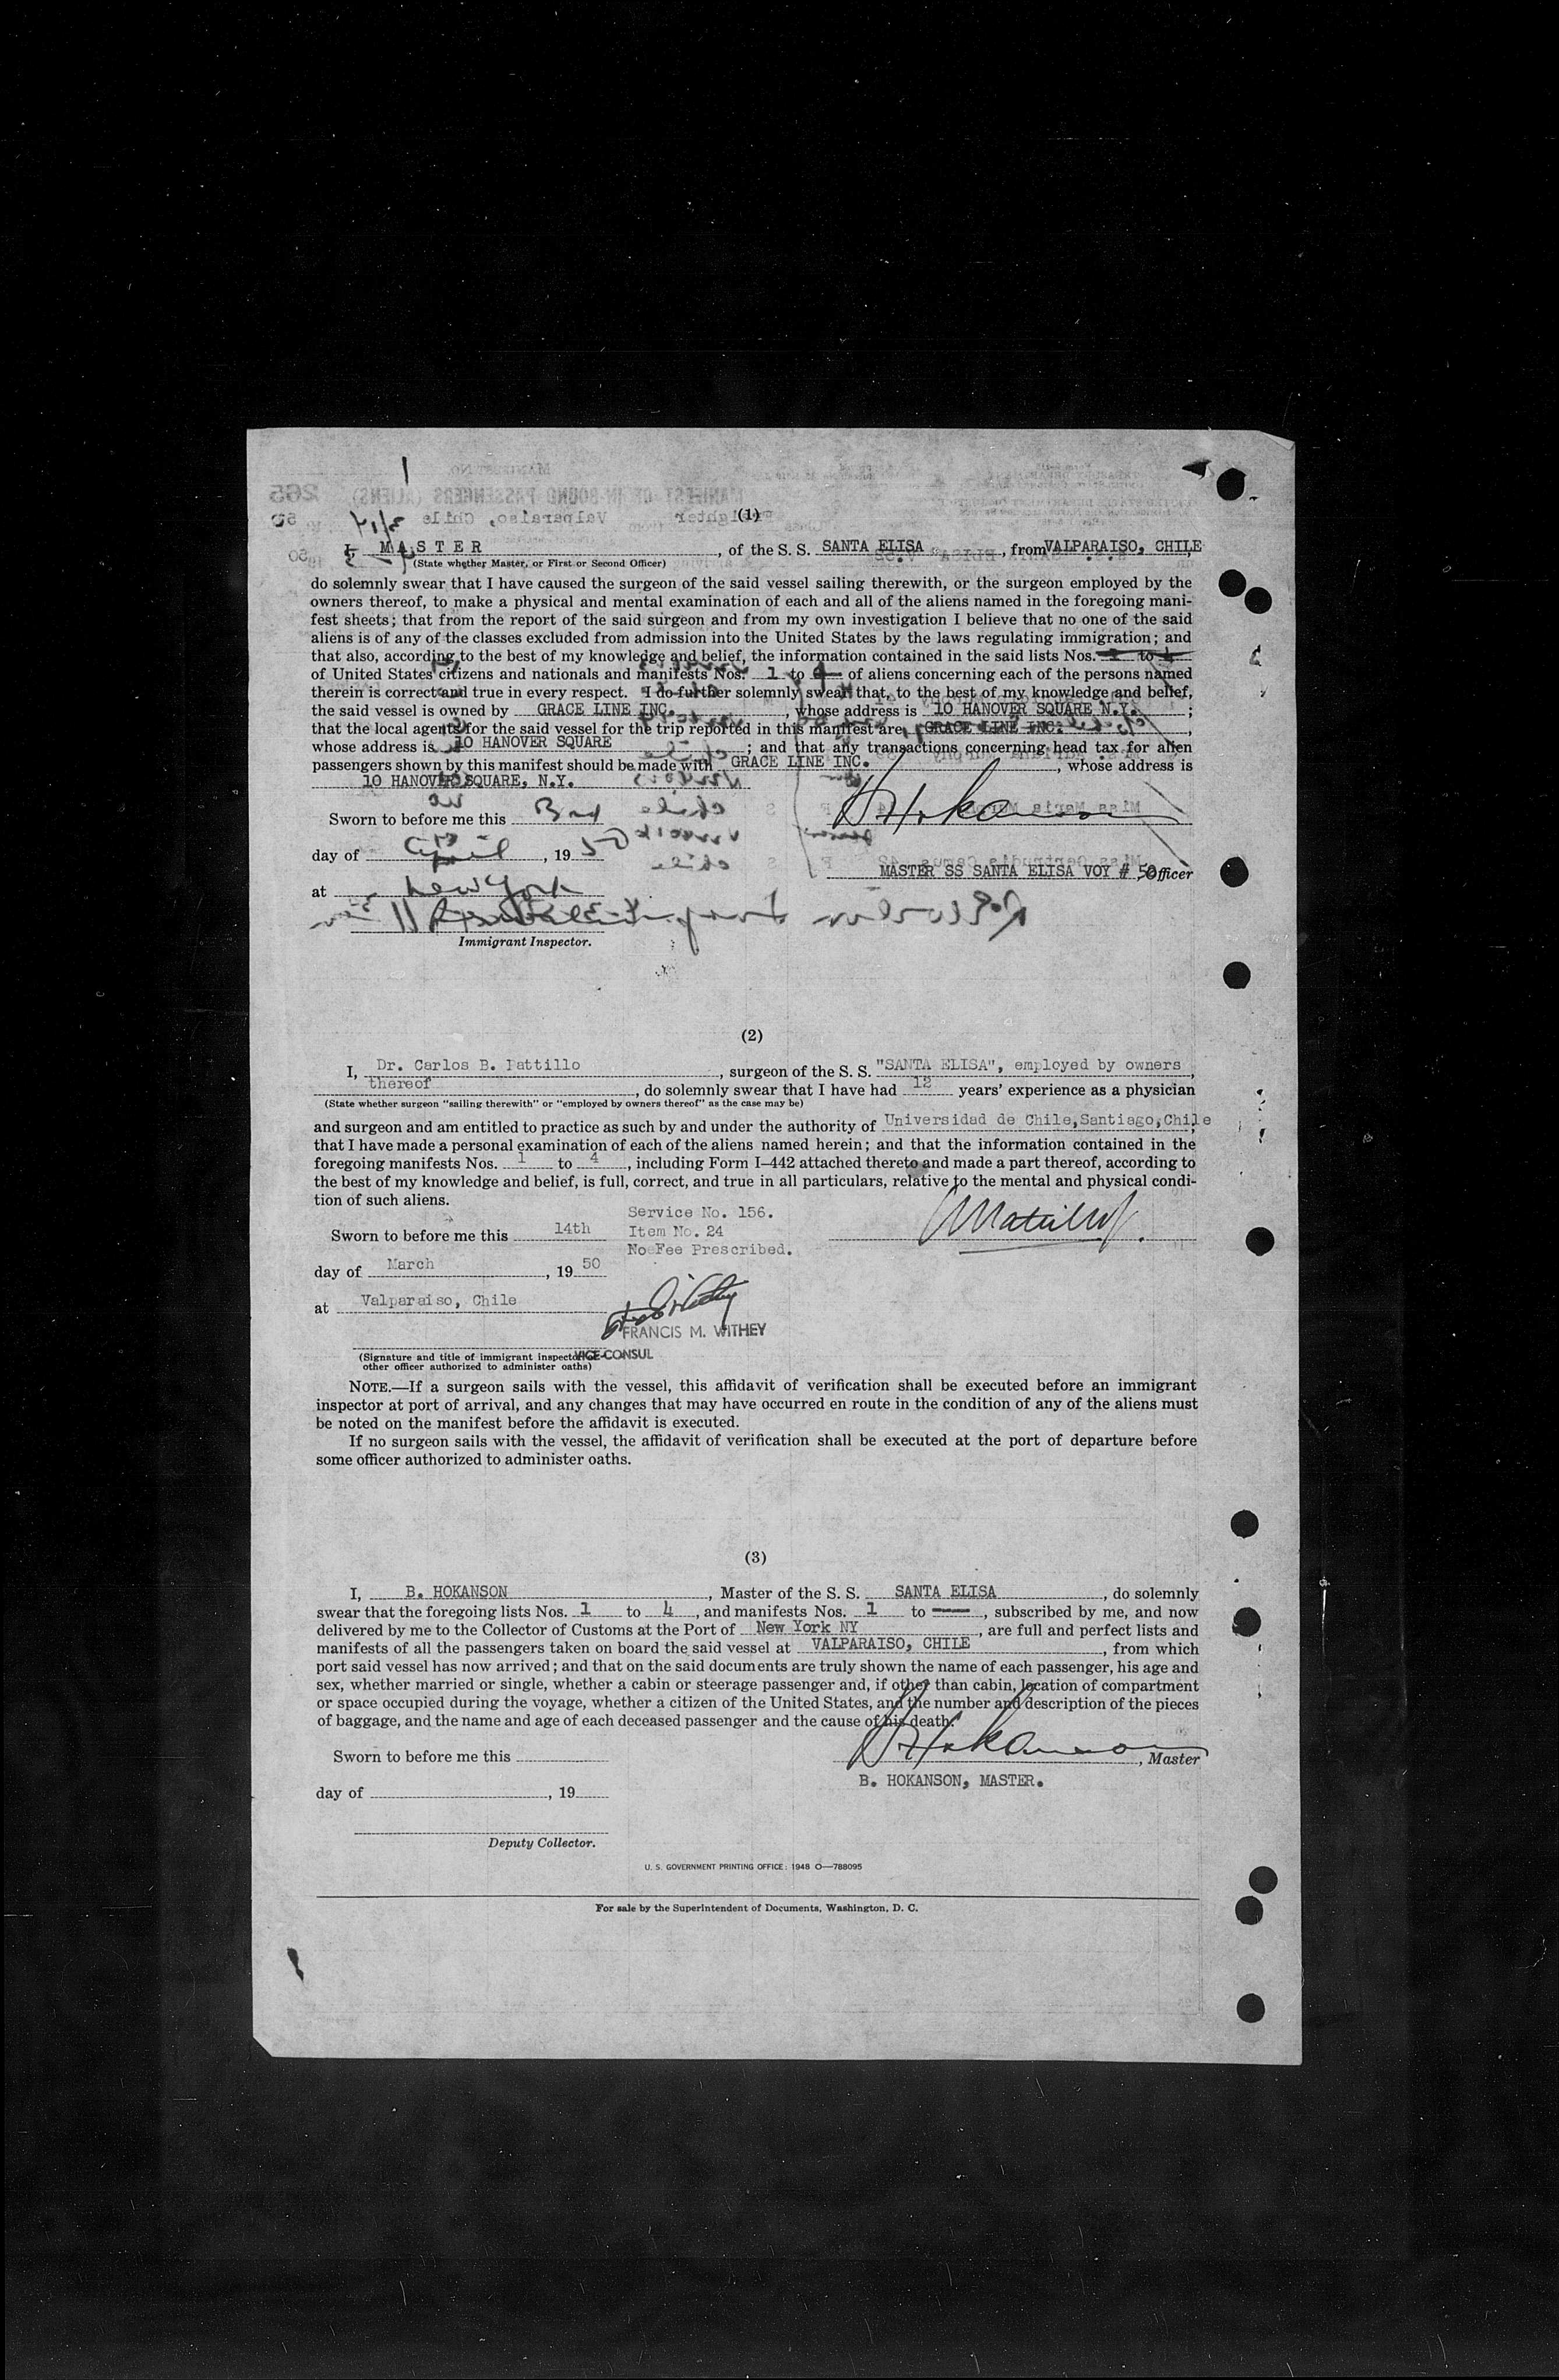 (1)
I, MASTER, of the S. S. SANTA ELISA, from VALPARAISO, CHILE
(State whether Master, or First or Second Officer)
do solemnly swear that I have caused the surgeon of the said vessel sailing therewith, or the surgeon employed by the
owners thereof, to make a physical and mental examination of each and all of the aliens named in the foregoing mani-
fest sheets; that from the report of the said surgeon and from my own investigation I believe that no one of the said
aliens is of any of the classes excluded from admission into the United States by the laws regulating immigration; and
that also, according to the best of my knowledge and belief, the information contained in the said lists Nos. 1 to 4
of United States citizens and nationals and manifests Nos. 1 to of aliens concerning each of the persons named
therein is correct and true in every respect. I do further solemnly swear that, to the best of my knowledge and belief,
the said vessel is owned by GRACE LINE INC., whose address is 10 HANOVER SQUARE N.Y. ;
that the local agents for the said vessel for the trip reported in this manifest are, GRACE LINE INC. ,
whose address is 10 HANOVER SQUARE ; and that any transactions concerning head tax for alien
passengers shown by this manifest should be made with GRACE LINE INC. , whose address is
10 HANOVER SQUARE, N.Y.
Sworn to before me this 3rd
day of April, 1950
MASTER SS SANTA ELISA VOY # 50 Officer
at New York
Immigrant Inspector.
(2)
I, Dr. Carlos B. Pattillo, surgeon of the S. S. "SANTA ELISA", employed by owners,
thereof, do solemnly swear that I have had 12 years' experience as a physician
(State whether surgeon "sailing therewith" or "employed by owners thereof" as the case may be)
and surgeon and am entitled to practice as such by and under the authority of Universidad de Chile,Santiago,Chile;
that I have made a personal examination of each of the aliens named herein; and that the information contained in the
foregoing manifests Nos. 1 to 4, including Form I–442 attached thereto and made a part thereof, according to
the best of my knowledge and belief, is full, correct, and true in all particulars, relative to the mental and physical condi-
tion of such aliens.
Service No. 156.
Sworn to before me this 14th Item No. 24
No Fee Prescribed.
day of March, 1950
at Valparaiso, Chile
FRANCIS M. WITHEY
VICE-CONSUL
(Signature and title of immigrant inspector or
other officer authorized to administer oaths)
NOTE.—If a surgeon sails with the vessel, this affidavit of verification shall be executed before an immigrant
inspector at port of arrival, and any changes that may have occurred en route in the condition of any of the aliens must
be noted on the manifest before the affidavit is executed.
If no surgeon sails with the vessel, the affidavit of verification shall be executed at the port of departure before
some officer authorized to administer oaths.
(3)
I, B. HOKANSON, Master of the S. S. SANTA ELISA, do solemnly
swear that the foregoing lists Nos. 1 to 4, and manifests Nos. 1 to ---, subscribed by me, and now
delivered by me to the Collector of Customs at the Port of New York NY, are full and perfect lists and
manifests of all the passengers taken on board the said vessel at VALPARAISO, CHILE, from which
port said vessel has now arrived; and that on the said documents are truly shown the name of each passenger, his age and
sex, whether married or single, whether a cabin or steerage passenger and, if other than cabin, location of compartment
or space occupied during the voyage, whether a citizen of the United States, and the number and description of the pieces
of baggage, and the name and age of each deceased passenger and the cause of his death.
Sworn to before me this
, Master
B. HOKANSON, MASTER.
day of , 19
Deputy Collector.
U. S. GOVERNMENT PRINTING OFFICE: 1948 O—788095
For sale by the Superintendent of Documents, Washington, D. C.